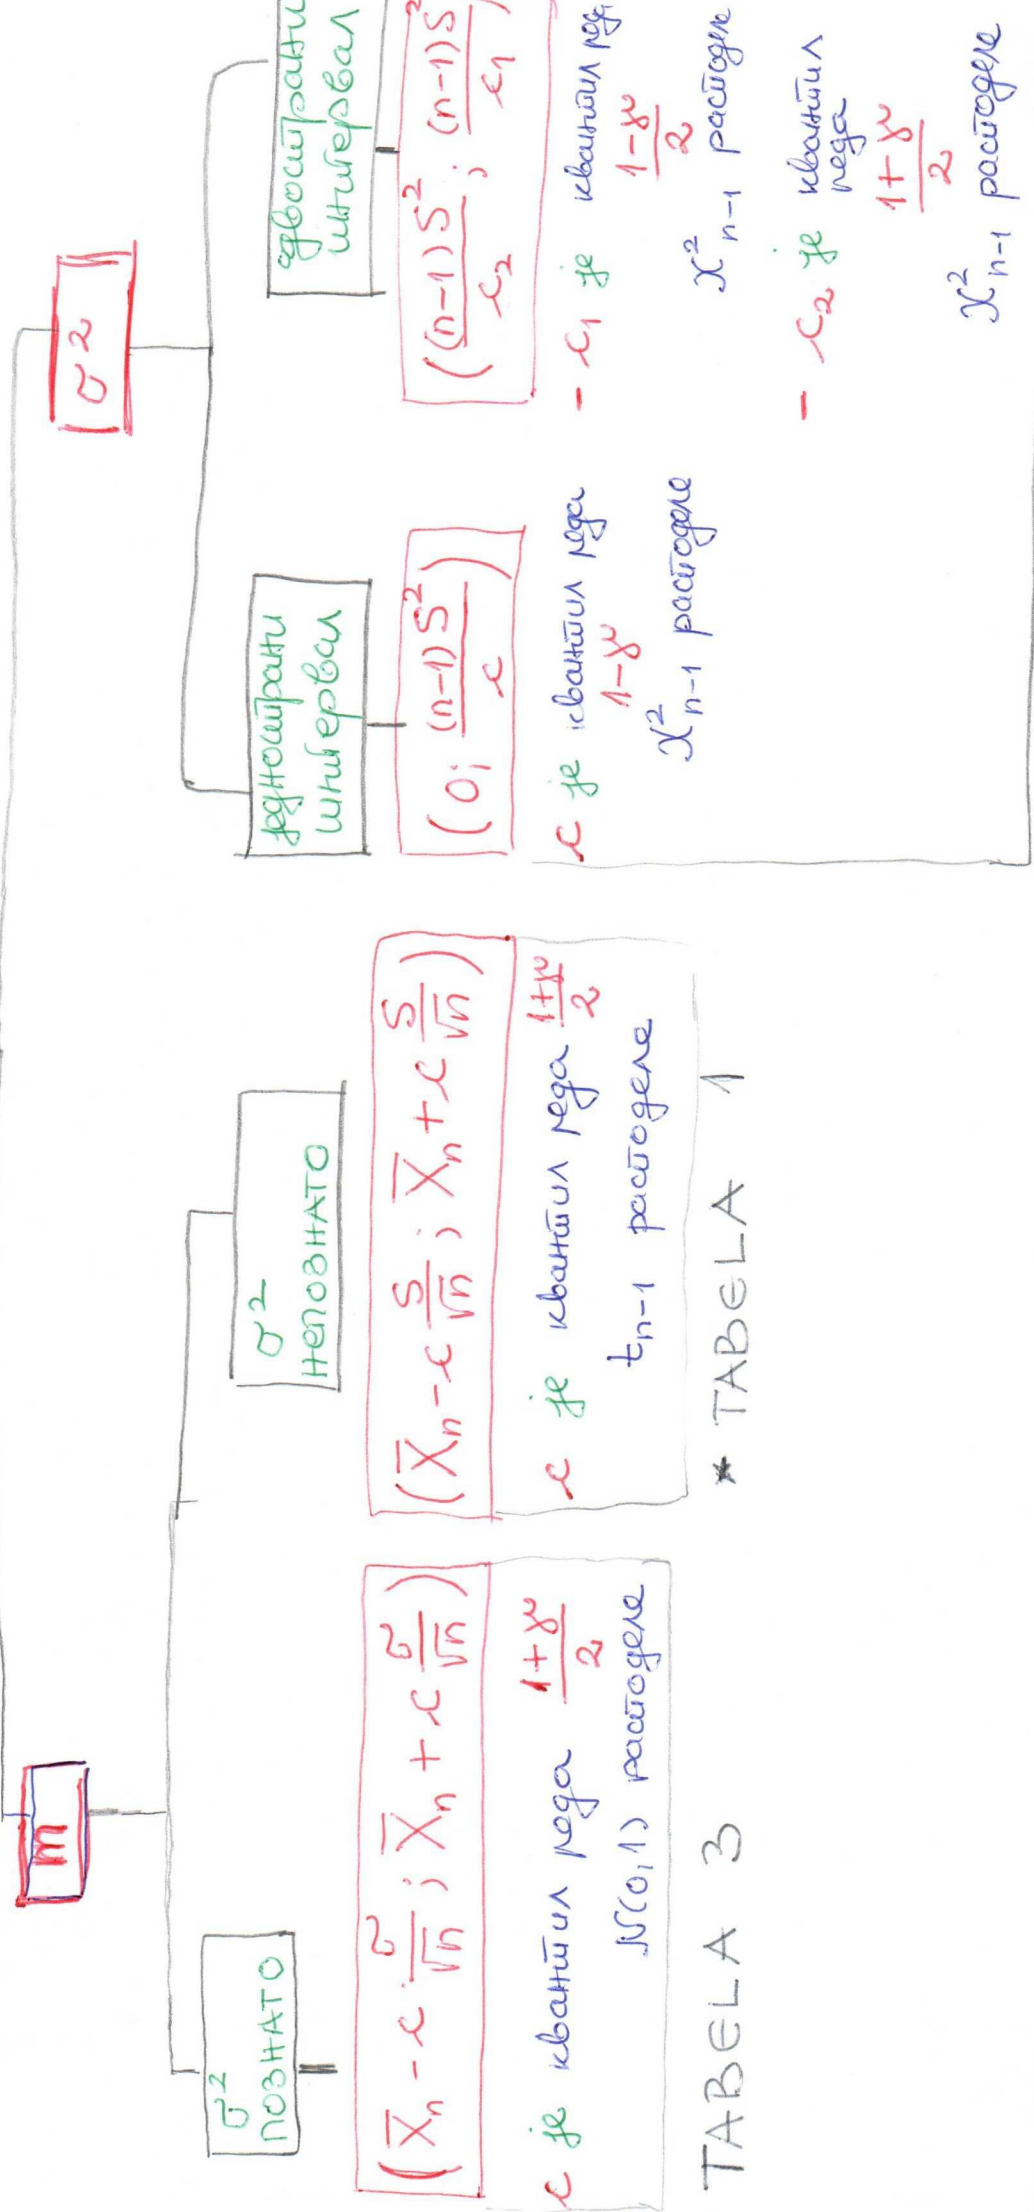 m
σ²
ПОЗНАТО
(X̄n - c · σ/√n ; X̄n + c σ/√n)
c је квантил реда (1+γ)/2
N(0,1) расподеле
TABELA 3
σ²
НЕПОЗНАТО
(X̄n - c S/√n ; X̄n + c S/√n)
c је квантил реда (1+γ)/2
tn-1 расподеле
* TABELA 1
σ²
једнострани
интервал
(0; (n-1)S²/c)
c је квантил реда
1-γ
χ²n-1 расподеле
двострани
интервал
((n-1)S²/c₂ ; (n-1)S²/c₁)
- c₁ је квантил реда
(1-γ)/2
χ²n-1 расподеле
- c₂ је квантил
реда
(1+γ)/2
χ²n-1 расподеле